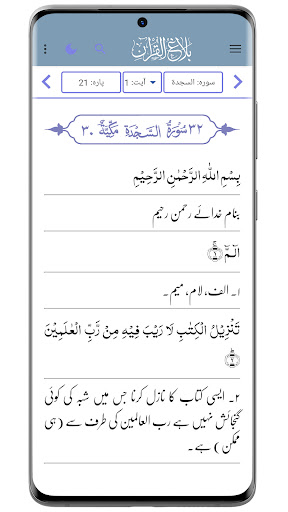 بلاغ القرآن
سورہ: السجدة
آیت: 1
پارہ: 21
۳۲ سُوْرَةُ السَّجْدَةِ مَكِّيَّةٌ ۳۰
بِسْمِ اللّٰهِ الرَّحْمٰنِ الرَّحِيْمِ
بنام خدائے رحمن رحیم
الٓـمّٓ ﴿۱﴾
۱۔ الف، لام، میم۔
تَنْزِيْلُ الْكِتٰبِ لَا رَيْبَ فِيْهِ مِنْ رَّبِّ الْعٰلَمِيْنَ
﴿۲﴾
۲۔ ایسی کتاب کا نازل کرنا جس میں شبہ کی کوئی
گنجائش نہیں ہے رب العالمین کی طرف سے (ہی
ممکن) ہے۔